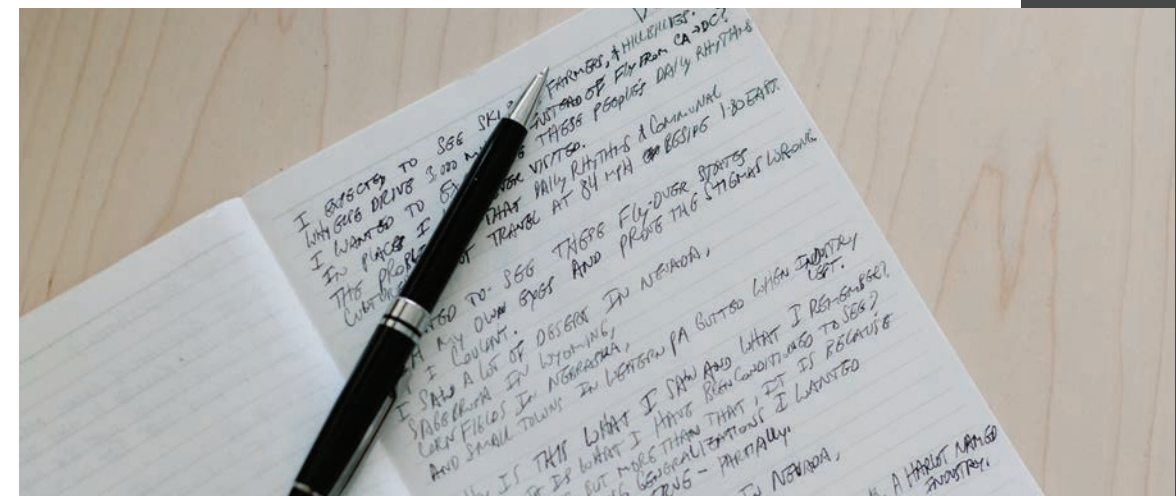 I EXPECTED TO SEE FARMERS, & HILLBILLIES.
WHY ELSE DRIVE 3,000 INSTEAD OF FLY FROM CA → DC?
I WANTED TO THESE PEOPLE'S DAILY RHYTHMS
IN PLACES I VISITED.
THE THAT DAILY RHYTHMS & COMMUNAL
TRAVEL AT 84 MPH BESIDE I-80 EAST.
TO SEE THESE FLY-OVER STATES
MY OWN EYES AND PROVE THE STIGMAS WRONG.
I COULDN'T.
I SAW A LOT OF DESERT IN NEVADA,
SAGEBRUSH IN WYOMING,
CORN FIELDS IN NEBRASKA,
AND SMALL TOWNS IN WESTERN PA GUTTED WHEN INDUSTRY
LEFT.
IS THIS WHAT I SAW AND WHAT I REMEMBER?
IT IS WHAT I HAVE BEEN CONDITIONED TO SEE?
BUT MORE THAN THAT, IT IS BECAUSE
GENERALIZATIONS I WANTED
- PARTIALLY.
IN NEVADA,
A HARLOT NAMED
INDUSTRY.